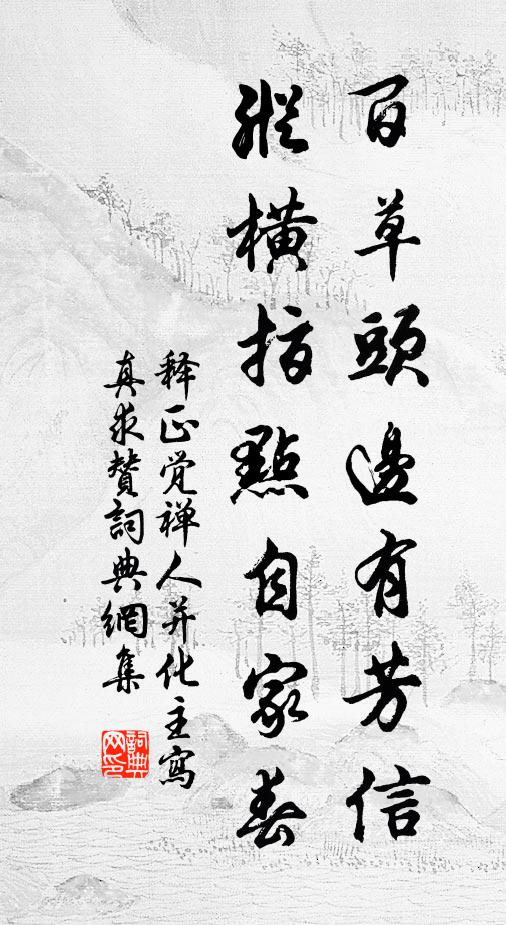 百草頭邊有芳信
縱橫指點自家春
释正觉禅人并化主寫
真求贊詞典網集
詞典网印